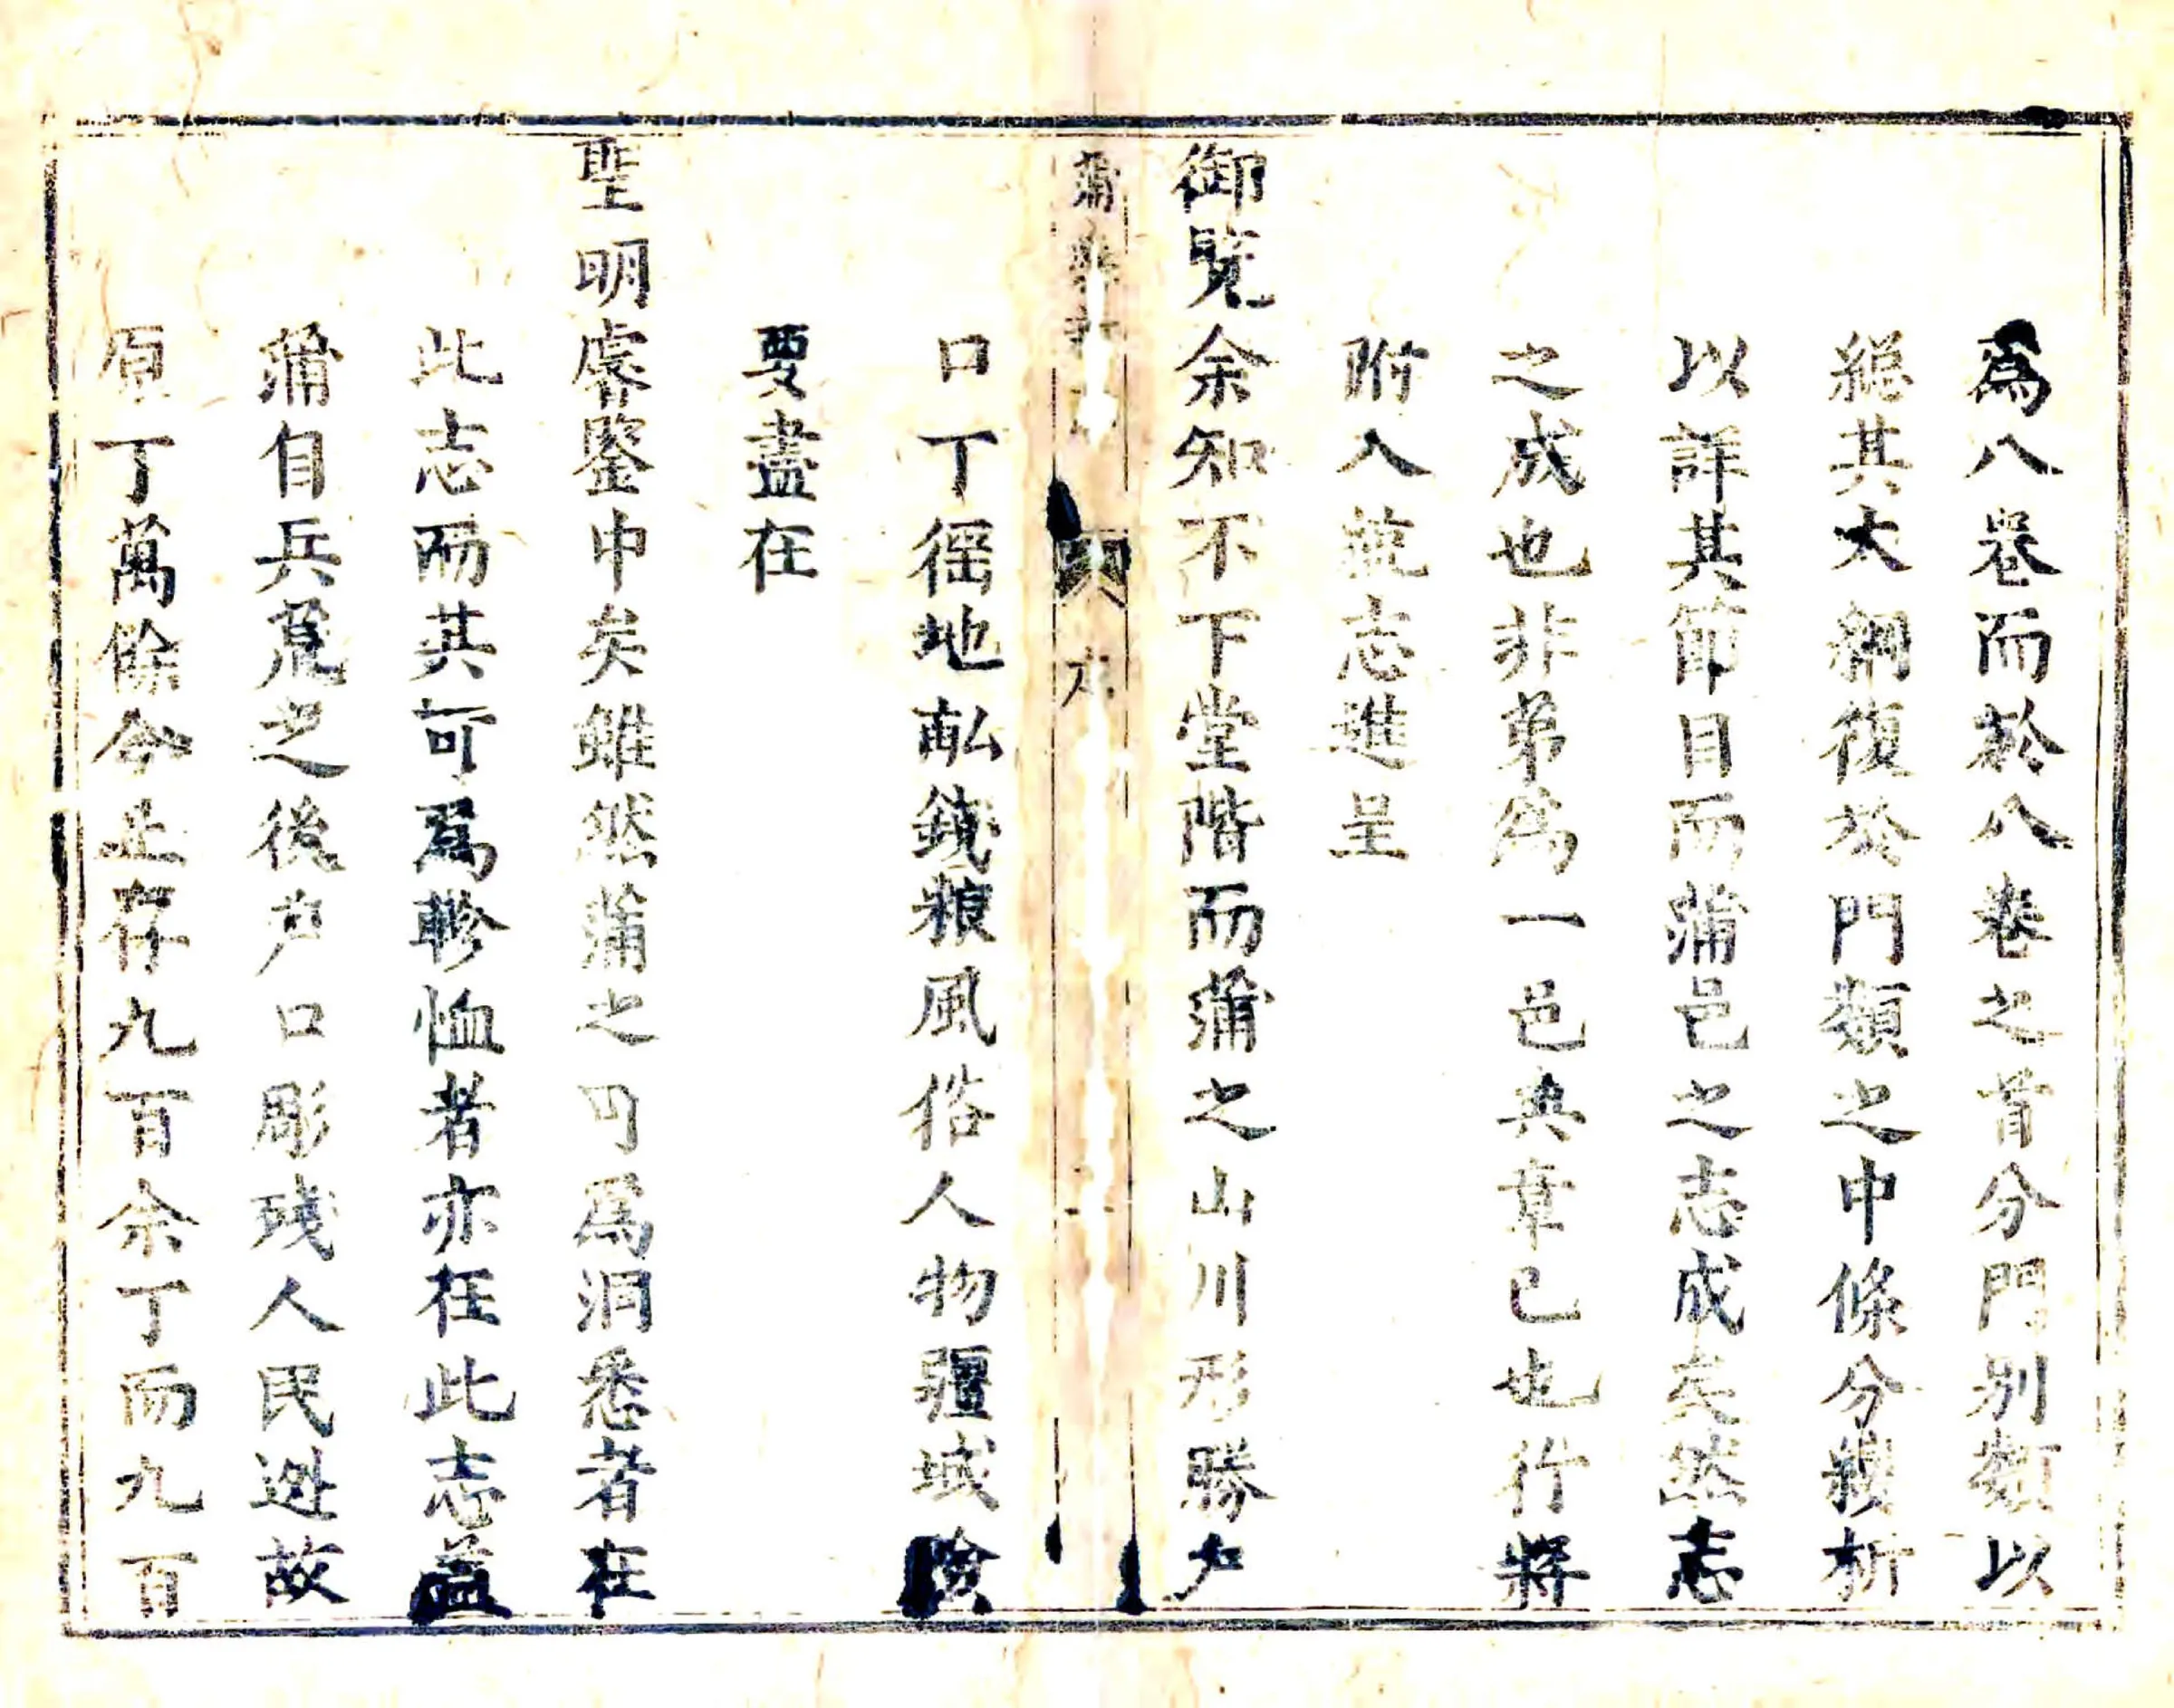 爲八卷而於八卷之首分門别類以
綂其大綱復於門類之中條分縷析
以詳其節目而蒲邑之志成矣然志
之成也非苐爲一邑典章已也行將
附入統志進呈
御覽余知不下堂階而蒲之山川形勝户
蒲縣志
六
口丁徭地畝錢粮風俗人物疆域險
要盡在
聖明睿鑒中矣雖然蒲之可爲洞悉者在
此志而其可爲軫恤者亦在此志葢
蒲自兵荒之後户口彫殘人民迯故
原丁萬餘今止存九百余丁而九百